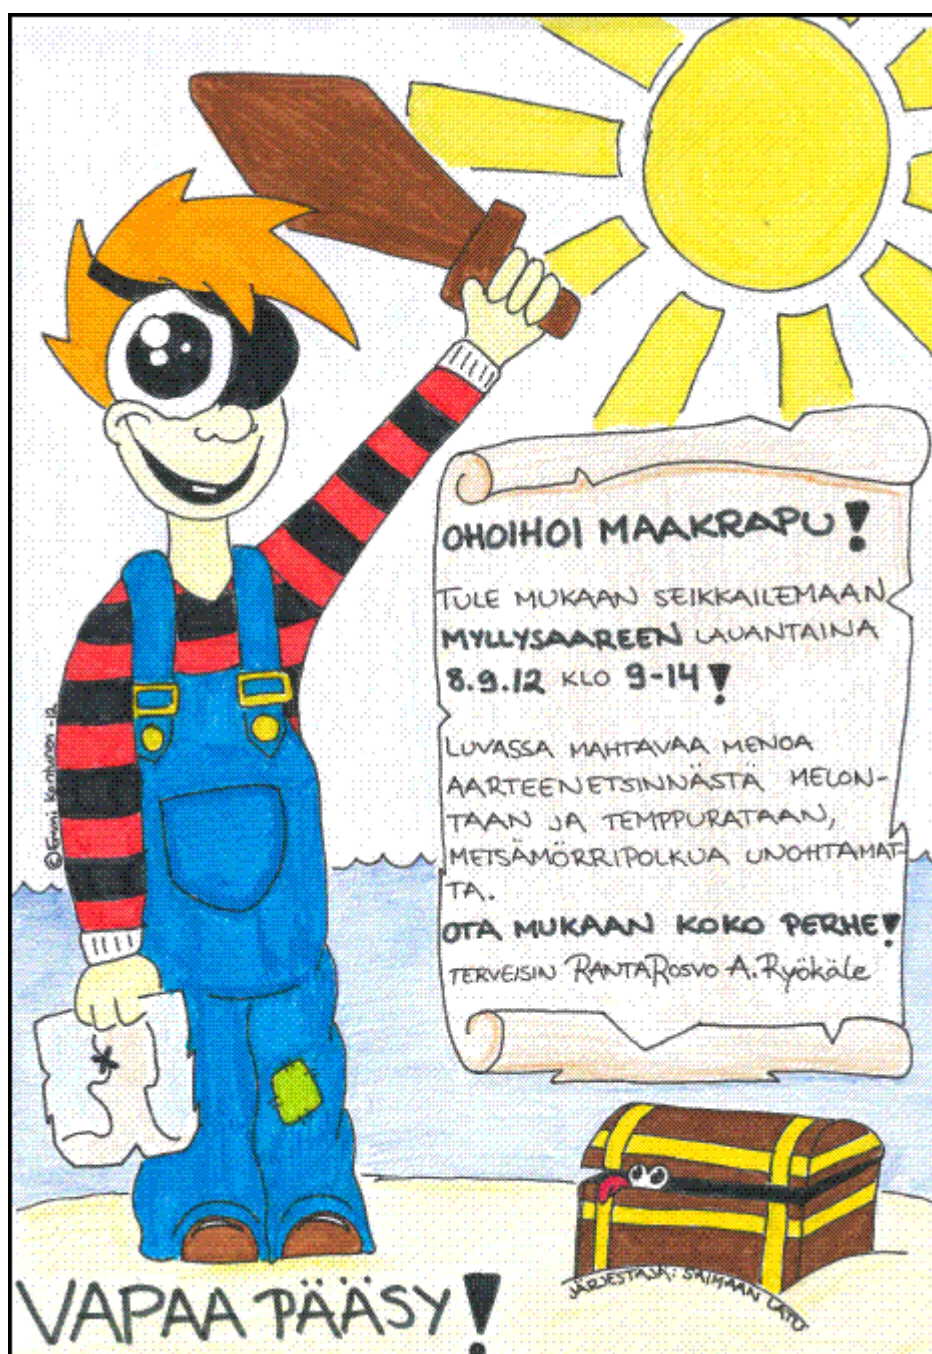 OHOIHOI MAAKRAPU!
TULE MUKAAN SEIKKAILEMAAN
MYLLYSAAREEN LAUANTAINA
8.9.12 KLO 9-14!
LUVASSA MAHTAVAA MENOA
AARTEENETSINNÄSTÄ MELON-
TAAN JA TEMPPURATAAN,
METSÄMÖRRIPOLKUA UNOHTAMAT-
TA.
OTA MUKAAN KOKO PERHE!
TERVEISIN RANTAROSVO A. Ryökäle
© Emmi Kontunen -12
JÄRJESTÄJÄ: SAIMAAN LATU
VAPAA PÄÄSY!